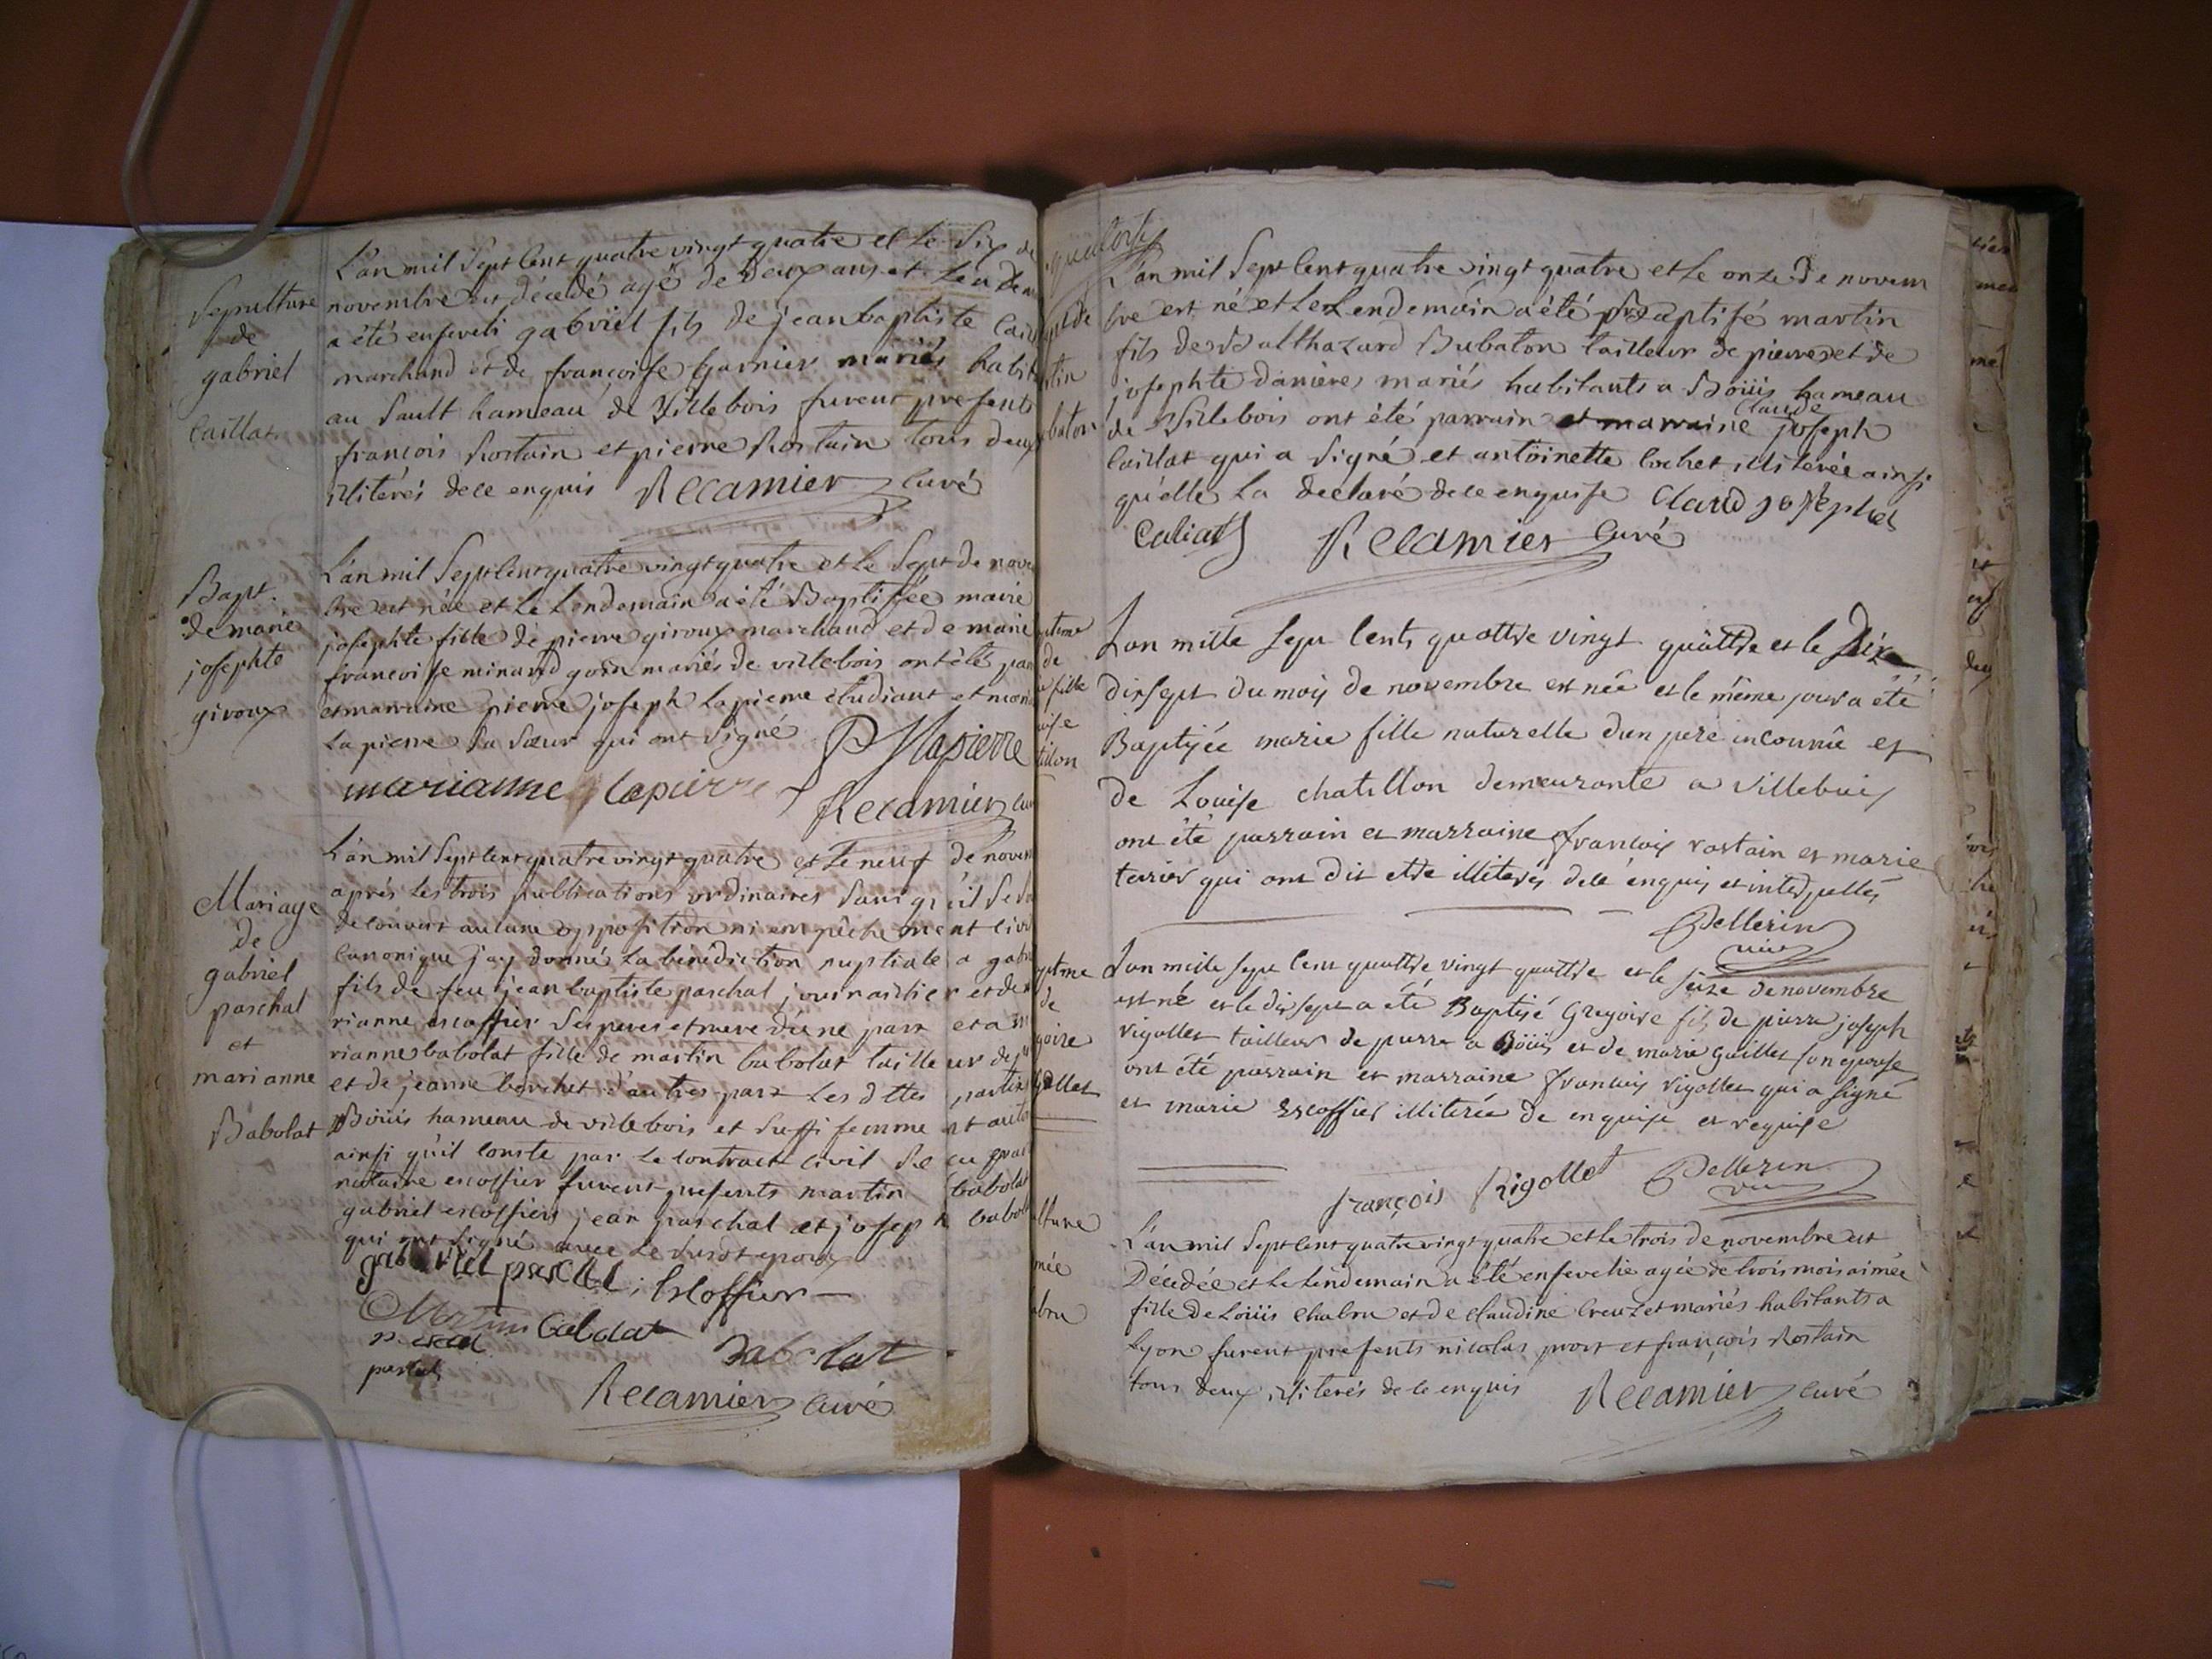 Sepulture
de
gabriel
Caillat
L'an mil Sept Cent quatre vingt quatre et le Six de
novembre est décedé agé de deux ans et Lendem
a été enseveli gabriel fils de jean baptiste Cail
marchand et de françoise Garnier mariés habit
au Sault hameau de Villebois furent presents
francois Rostain et pierre Rostain tous deux
illitérés de ce enquis Recamier Curé
Bapt.
de marie
josephte
giroux
L'an mil Sept Cent quatre vingt quatre et le Sept de nov
bre est née et le Lendemain a été Baptisée marie
josephte fille de pierre giroux marchand et de marie
francoise minand goin mariés de villebois ont été par
et marraine pierre joseph Lapierre étudiant et mari
Lapierre Sa Sœur qui ont Signé PJ lapierre
marianne lapierre Recamier cu
Mariage
de
gabriel
paschal
et
marianne
Babolat
L'an mil Sept Cent quatre vingt quatre et le neuf de novem
aprés Les trois publications ordinaires Sans qu'il Se
decouvrit aucune opposition ni empêchement civi
canonique j'ay donné La bénédiction nuptiale a gabr
fils de feu jean baptiste paschal journailier et de
rianne escoffier Ses pere et mere d'une part et a m
rianne babolat fille de martin babolat tailleur de p
et de jeanne borchet d'autres part Les dttes partie
Boüis hameau de villebois et Suffisemment aut
ainsi qu'il Conste par Le Contract Civil
notaire escoffier furent presents martin babolat
gabriel escoffier jean paschal et joseph babol
qui ont Signé avec Le Susdt epoux
gabriel pascal Escoffier
Martin babolat
pascal
Babolat
Recamier Curé
quatorze
bapt de
rtin
baton
L'an mil Sept Cent quatre vingt quatre et le onze de novem
bre est né et le Lendemain a été Baptisé martin
fils de Balthazard Bubaton tailleur de pierres et de
josephte danieres mariés habitants a Boüis hameau
de Villebois ont été parrain et marraine Claude joseph
Caillat qui a Signé et antoinette Cochet illiterée ainsi
qu'elle La declaré de ce enquise Claud josephet
Caliat Recamier Curé
pteme
de
e fille
uise
tillon
Lan mille Sept Cents quattre vingt quattre et le
dixsept du mois de novembre est née et le même jour a été
Baptisée marie fille naturelle d'un pere inconnû et
de Louise chatillon demeurante a Villebois
ont été parrain et marraine françois rostain et marie
terier qui ont dit etre illiterés de ce enquis et interpellés
Pellerin
vic
ptme
de
goire
gollet
Lan mille sept Cent quattre vingt quattre et le seize de novembre
est né et le dixsept a été Baptisé Gregoire fils de pierre joseph
rigollet tailleur de pierre a Boüis et de marie guillet son epouse
ont été parrain et marraine francois rigollet qui a signé
et marie Escoffier illiterée de enquise et requise
françois Rigollet Pellerin
vic
lture
mée
abru
L'an mil Sept Cent quatre vingt quatre et le trois de novembre est
Décédée et Le Lendemain a été ensevelie agée de trois mois aimée
fille de Loüis Chabru et de Claudine Creuzet mariés habitants a
Lyon furent presents nicolas prost et françois Rostain
tous deux illiterés de ce enquis Recamier Curé